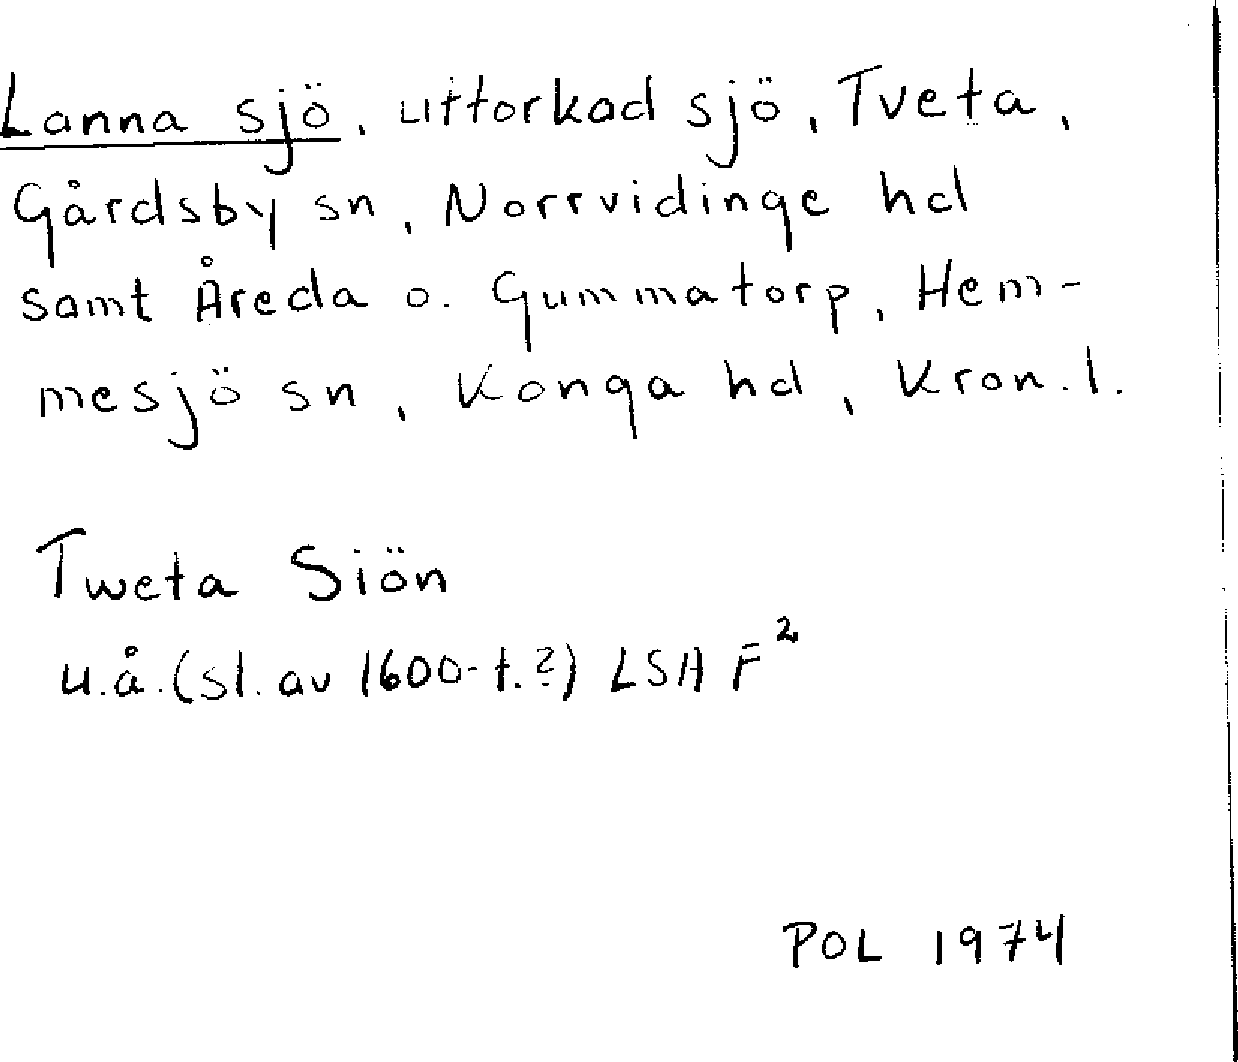 Lanna sjö, uttorkad sjö, Tveta,
Gårdsby sn, Norrvidinge hd
samt Åreda o. Gummatorp, Hem-
mesjö sn, Konga hd, Kron.l.
Tweta Siön
u.å. (sl. av 1600-t.?) LSA F²
POL 1974